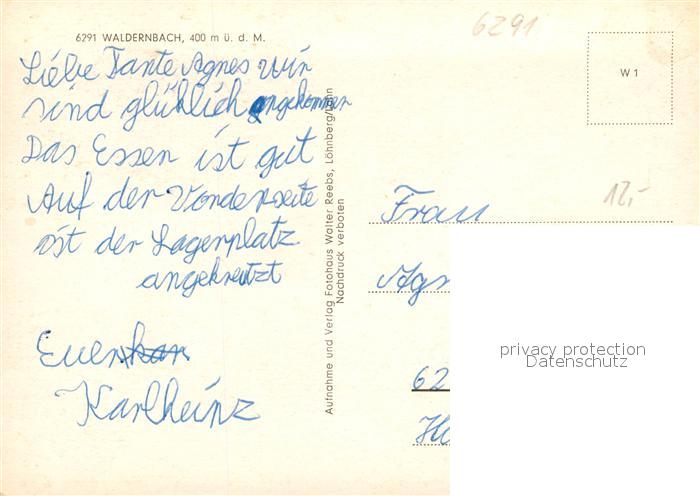 6291 WALDERNBACH, 400 m ü. d. M.
Liebe Tante Agnes wir
sind glüklich angekommen
Das Essen ist gut
Auf der Vonderseite
ist der Lagerplatz
angekreutzt
Euer
Karlheinz
Aufnahme und Verlag Fotohaus Walter Reebs, Löhnberg/Lahn
Nachdruck verboten
6291
W 1
12,-
Frau
Agn
62
privacy protection
Datenschutz